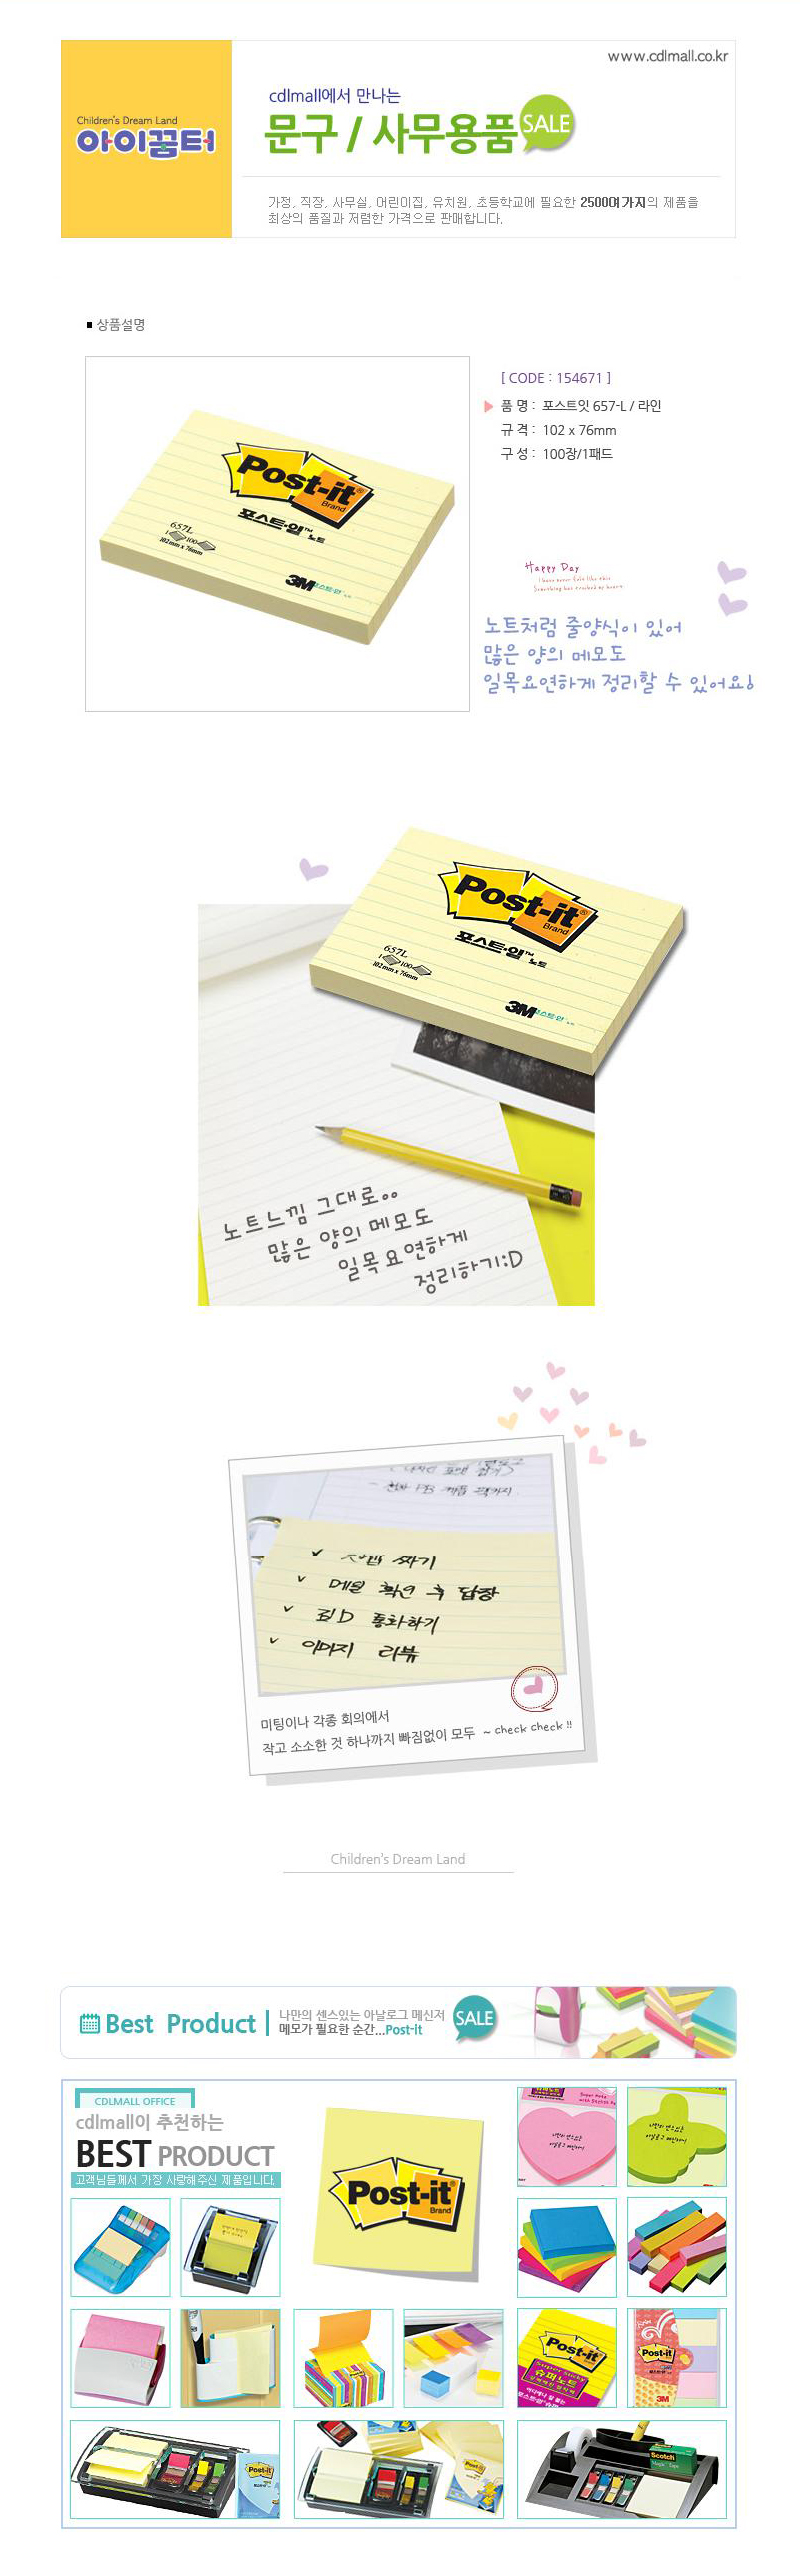 www.cdlmall.co.kr
Children's Dream Land
아이꿈터
cdlmall에서 만나는
문구 / 사무용품 SALE
가정, 직장, 사무실, 어린이집, 유치원, 초등학교에 필요한 2500여가지의 제품을
최상의 품질과 저렴한 가격으로 판매합니다.
상품설명
[ CODE : 154671 ]
품 명 : 포스트잇 657-L / 라인
규 격 : 102 x 76mm
구 성 : 100장/1패드
Post-it
Brand
포스트-잍™ 노트
657L
1 100
102mm x 76mm
3M 포스트-잍
Happy Day
노트처럼 줄양식이 있어
많은 양의 메모도
일목요연하게 정리할 수 있어요!
Post-it
Brand
포스트-잍™ 노트
657L
1 100
102mm x 76mm
3M 포스트-잍
노트느낌 그대로..
많은 양의 메모도
일목요연하게
정리하기:D
짜기
메일 확인 후 답장
통화하기
이미지 리뷰
미팅이나 각종 회의에서
작고 소소한 것 하나까지 빠짐없이 모두 ~ check check !!
Children's Dream Land
Best Product
나만의 센스있는 아날로그 메신저
메모가 필요한 순간...Post-it
SALE
CDLMALL OFFICE
cdlmall이 추천하는
BEST PRODUCT
고객님들께서 가장 사랑해주신 제품입니다.
Post-it
Brand
Super Note
with Sticker
Post-it
Super Sticky
슈퍼노트
Post-it
3M
Post-it
Post-it
Scotch
Magic Tape